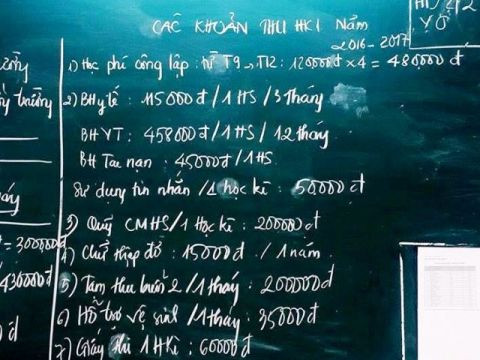 CÁC KHOẢN THU HKI NĂM
2016-2017
1) Học phí công lập: từ T9 → T12: 120000đ x4 = 480,000đ
2) BH y tế: 115000đ / 1HS / 3 tháng
BHYT: 458000đ / 1HS / 12 tháng
BH Tai nạn: 45000đ / 1HS.
Sử dụng tin nhắn / 1 học kì: 50000đ
3) Quỹ CMHS / 1 Học kì: 20000đ
4) Chữ thập đỏ: 15000đ / 1 năm
5) Tạm thu buổi 2 / 1 tháng: 200000đ
6) Hỗ trợ vệ sinh / 1 tháng: 35000đ
7) Giấy thi 1HKì: 60000đ
trường
= 300000đ
430000đ